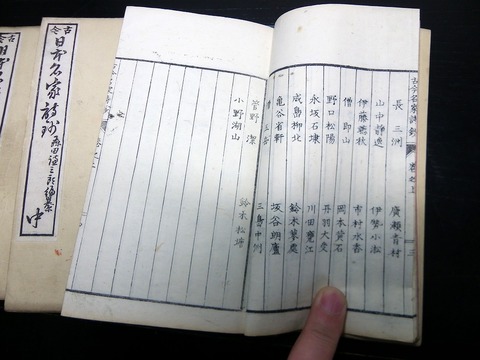 古今
日本名家詩鈔
中
古今名家詩鈔 卷之上 三
長三洲 廣瀬青村
山中靜逸 伊勢小淞
伊藤聽秋 市村水香
僧即山 岡本黄石
野口松陽 丹羽大受
永坂石埭 川田甕江
成島柳北 鈴木蓼處
亀谷省軒 坂谷朗廬
僧五岳 三島中洲
菅野潔 鈴木松塘
小野湖山